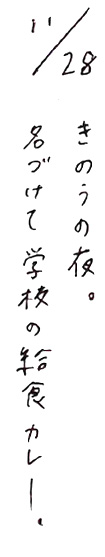 11/28
きのうの夜。
名づけて学校の給食カレー.